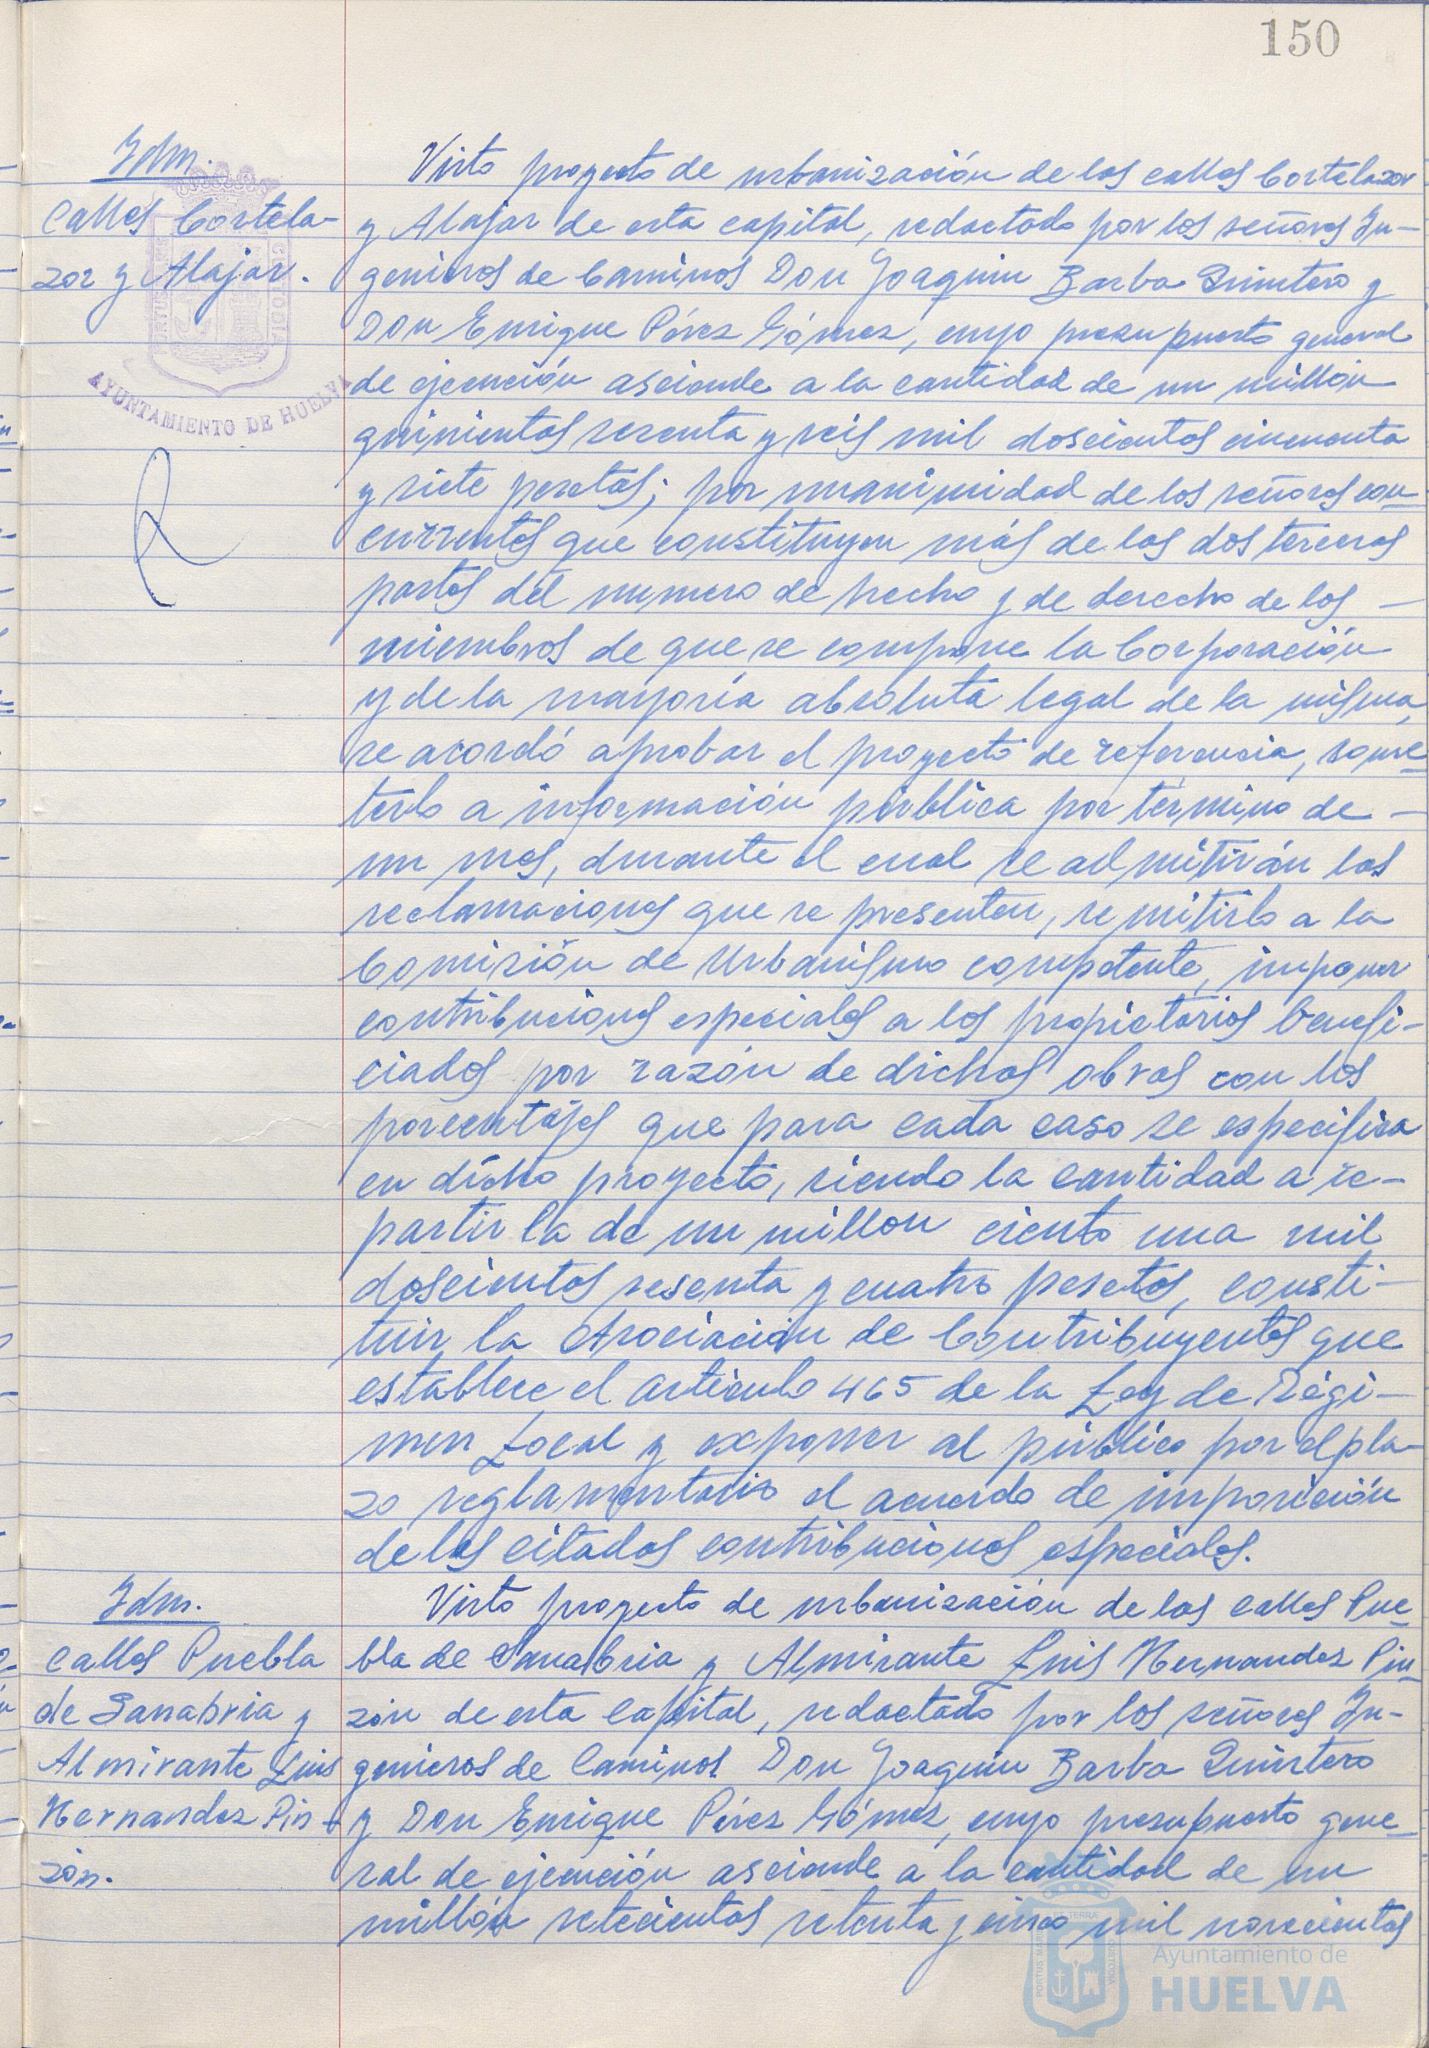 150
Idm.
Calles Cortela-
zor y Alajar.
PORTUS MARIS CUSTODIA
AYUNTAMIENTO DE HUELVA
Visto proyecto de urbanización de las calles Cortelazor
y Alajar de esta capital, redactado por los señores In-
genieros de Caminos Don Joaquin Barba Quintero y
Don Enrique Pérez Gómez, cuyo presupuesto general
de ejecución asciende a la cantidad de un millón
quinientas sesenta y seis mil doscientos cincuenta
y siete pesetas; por unanimidad de los señores con-
currentes que constituyen más de las dos terceras
partes del numero de hecho y de derecho de los -
miembros de que se compone la Corporación
y de la mayoría absoluta legal de la misma,
se acordó aprobar el proyecto de referencia, some-
terlo a información pública por término de -
un mes, durante el cual se admitirán las
reclamaciones que se presenten, remitirlo a la
Comisión de Urbanismo competente, imponer
contribuciones especiales a los propietarios benefi-
ciados por razón de dichas obras con los
porcentajes que para cada caso se especifica
en dicho proyecto, siendo la cantidad a re-
partir la de un millon ciento una mil
doscientas sesenta y cuatro pesetas, consti-
tuir la Asociación de Contribuyentes que
establece el articulo 465 de la Ley de Régi-
men Local y exponer al público por el pla-
zo reglamentario el acuerdo de imposición
de las citadas contribuciones especiales.
Idm.
Calles Puebla
de Sanabria y
Almirante Luis
Hernandez Pin-
zón.
Visto proyecto de urbanización de las calles Pue-
bla de Sanabria y Almirante Luis Hernandez Pin-
zón de esta Capital, redactado por los señores In-
genieros de Caminos Don Joaquin Barba Quintero
y Don Enrique Pérez Gómez, cuyo presupuesto gene-
ral de ejecución asciende a la cantidad de un
millón setecientas setenta y cinco mil novecientas
Ayuntamiento de
HUELVA